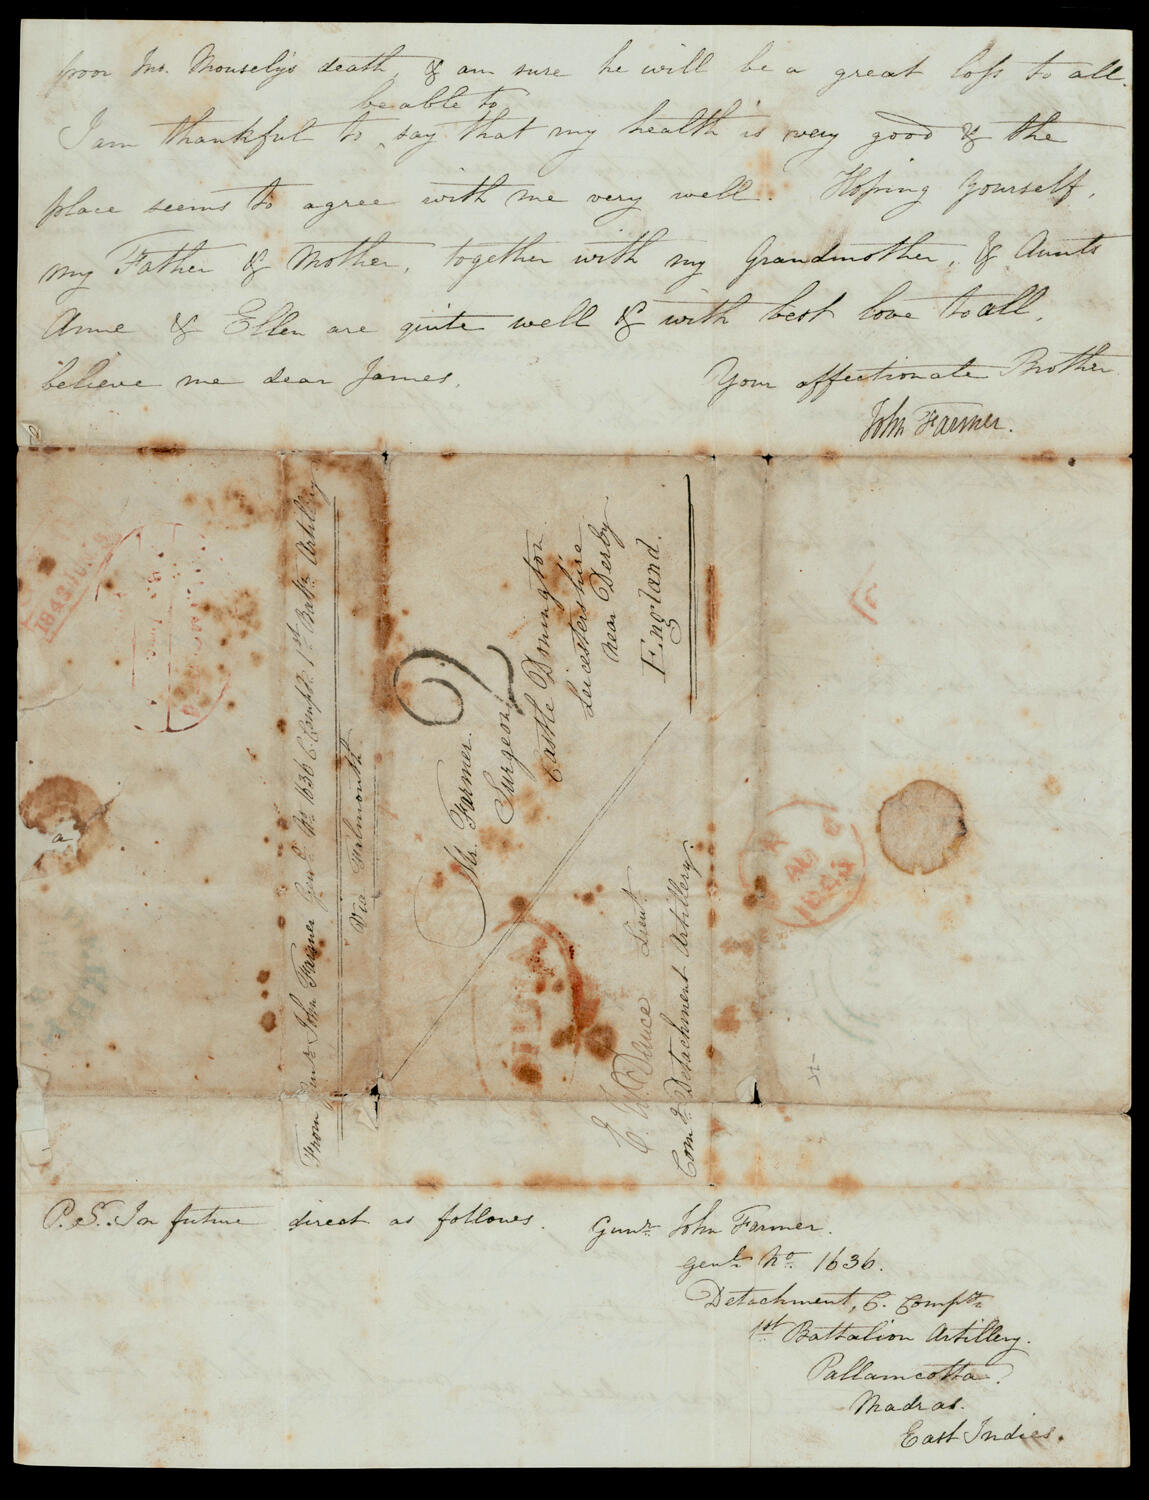 poor Jno. Mousely's death, & am sure he will be a great loss to all.
be able to
I am thankful to say that my health is very good & the
place seems to agree with me very well. Hoping yourself,
my Father & Mother, together with my Grandmother, & Aunts
Anne & Ellen are quite well & with best love to all,
believe me dear James,
Your affectionate Brother
John Farmer.
From Gunr. John Farmer Genl. No. 1636 C Compy. 1st Battn. Artillery
Via Falmouth
Mr. Farmer.
Surgeon,
Castle Donington
Leicestershire
near Derby
England.
2
E. W. Bruce Lieut.
Comg. Detachment Artillery.
1843
AU
1843
a
P.S. In future direct as follows. Gunr. John Farmer.
genl. No. 1636.
Detachment, C. Compy.
1st Battalion Artillery.
Pallamcotta.
Madras.
East Indies.